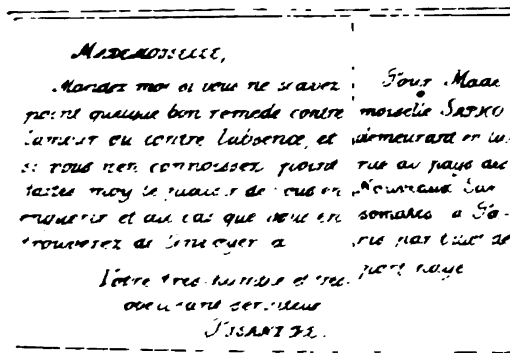 Mademoiselle,
Mandez moi si vous ne scavez
point quelque bon remede contre
lamour ou contre labsence, et
si vous nen connoissez point
faites moy le plaisir de vous en
enquerir et au cas que vous en
trouverez de lenvoyer a
Votre tres humble et tres
obeissant serviteur
Pisandre.
Pour Made
moiselle Sapho
demeurant en la
rue au pays des
Nouveaux San
somates a Pa-
ris par billet de
port paye